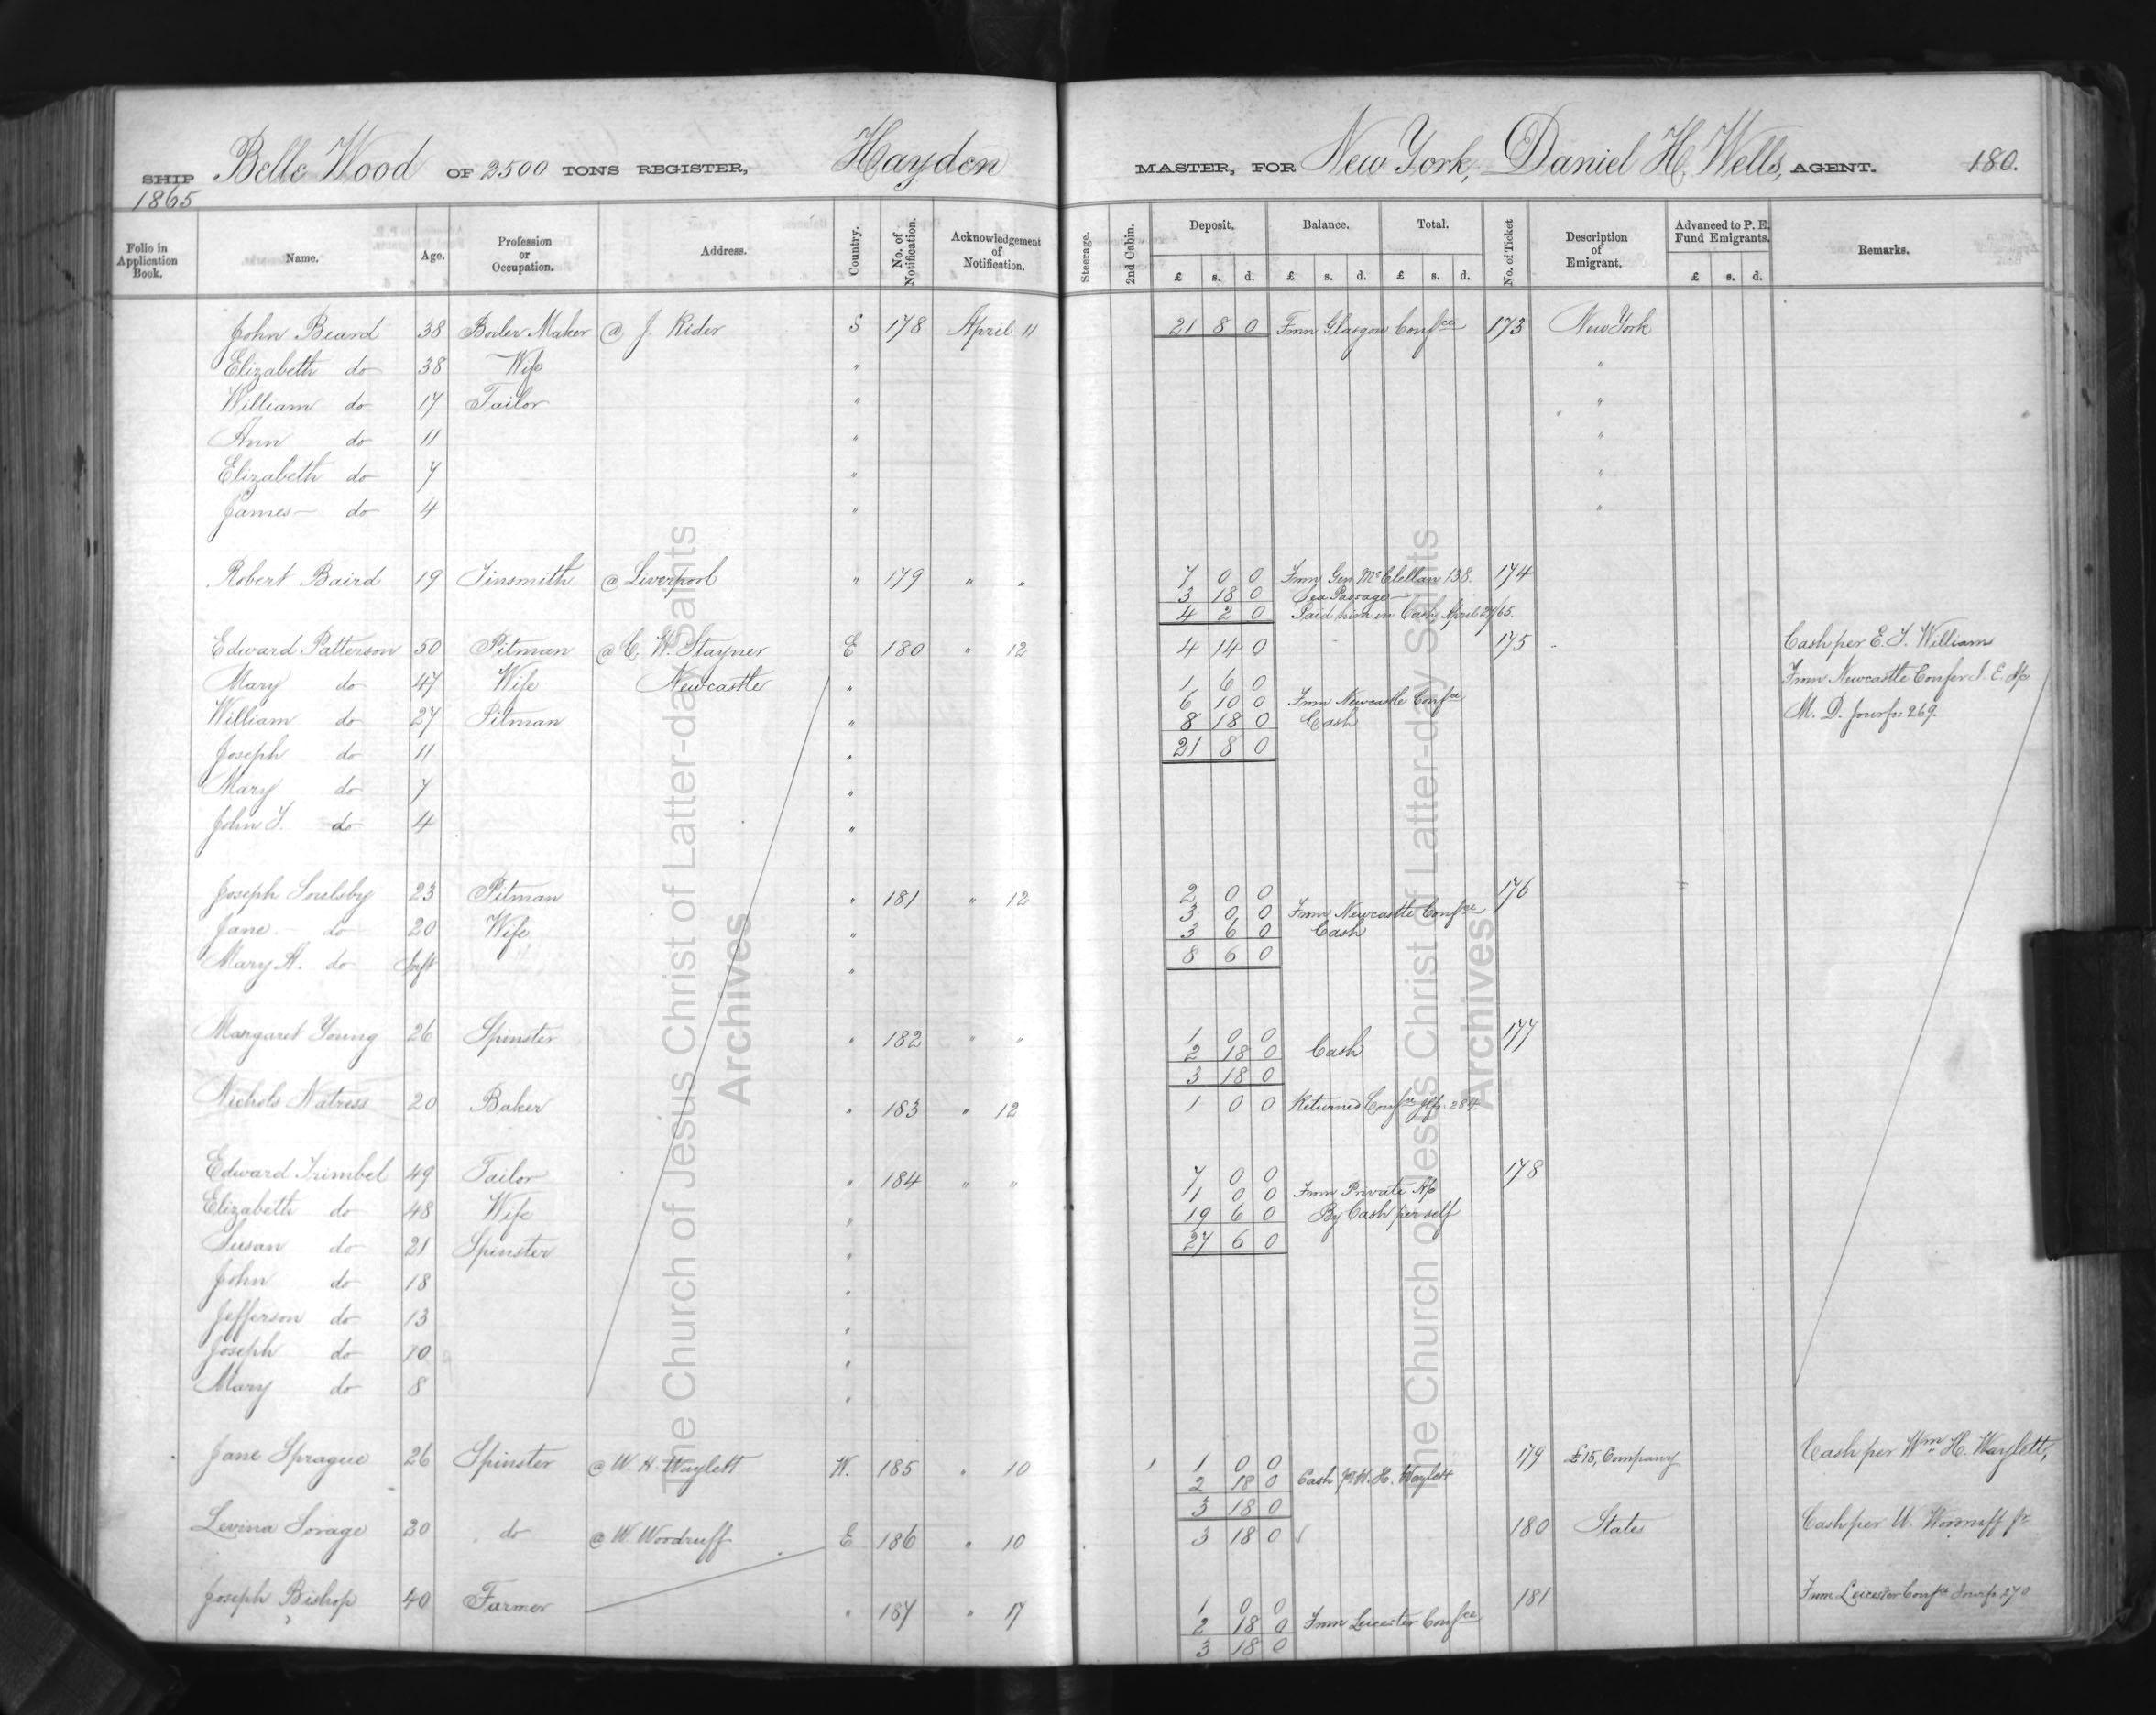 SHIP Belle Wood OF 2500 TONS REGISTER, Hayden MASTER, FOR New York, Daniel H. Wells, AGENT. 180.
1865
Folio in Application Book. Name. Age. Profession or Occupation. Address. Country. No. of Notification. Acknowledgement of Notification. Steerage. 2nd Cabin. Deposit. Balance. Total. No. of Ticket Description of Emigrant. Advanced to P. E. Fund Emigrants. Remarks.
£ s. d. £ s. d. £ s. d. £ s. d.
John Beard 38 Boiler Maker @ J. Rider S 178 April 11 21 8 0 From Glasgow Confce 173 New York
Elizabeth do 38 Wife " "
William do 17 Tailor " "
Ann do 11 " "
Elizabeth do 7 " "
James do 4 " "
Robert Baird 19 Tinsmith @ Liverpool " 179 " " 7 0 0 From Gen McClellan 138. 174
3 18 0 Sea Passage
4 2 0 Paid him in Cash April 27/65.
Edward Patterson 50 Pitman @ C. W. Stayner E 180 " 12 4 14 0 175 Cash per E. T. William
Mary do 47 Wife Newcastle " 1 6 0 From Newcastle Confer I. E. A/c
6 10 0 From Newcastle Confce
William do 27 Pitman " 8 18 0 Cash M. D. Jour p: 269.
Joseph do 11 " 21 8 0
Mary do 7 "
John T. do 4 "
Joseph Soulsby 23 Pitman " 181 " 12 2 0 0 176
3 0 0 From Newcastle Confce
Jane do 20 Wife " 3 6 0 Cash
Mary A. do Inft " 8 6 0
Margaret Young 26 Spinster " 182 " " 1 0 0 177
2 18 0 Cash
3 18 0
Nichols Natress 20 Baker " 183 " 12 1 0 0 Returned Confce Jl p. 284.
Edward Trimbel 49 Tailor " 184 " " 7 0 0 178
1 0 0 From Private A/c
Elizabeth do 48 Wife " 19 6 0 By Cash per self
Susan do 21 Spinster " 27 6 0
John do 18 "
Jefferson do 13 "
Joseph do 10 "
Mary do 8 "
Jane Sprague 26 Spinster @ W. H. Waylett W. 185 " 10 1 0 0 179 £15, Company Cash per Wm H. Waylett,
2 18 0 Cash pr W. H. Waylett
3 18 0
Levina Savage 20 do @ W. Woodruff E 186 " 10 3 18 0 180 States Cash per W. Woodruff Jr
Joseph Bishop 40 Farmer " 187 " 17 1 0 0 181 From Leicester Confce Jour p. 270
2 18 0 From Leicester Confce
3 18 0
The Church of Jesus Christ of Latter-day Saints
Archives
The Church of Jesus Christ of Latter-day Saints
Archives